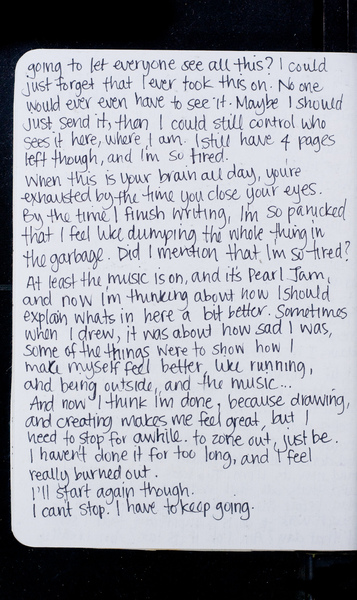 going to let everyone see all this? I could
just forget that I ever took this on. No one
would ever even have to see it. Maybe I should
just send it, then I could still control who
sees it here, where I am. I still have 4 pages
left though, and I'm so tired.
When this is your brain all day, you're
exhausted by the time you close your eyes.
By the time I finish writing, I'm so panicked
that I feel like dumping the whole thing in
the garbage. Did I mention that I'm so tired?
At least the music is on, and it's Pearl Jam,
and now I'm thinking about how I should
explain whats in here a bit better. Sometimes
when I drew, it was about how sad I was,
some of the things were to show how I
make myself feel better, like running,
and being outside, and the music...
And now I think I'm done, because drawing,
and creating makes me feel great, but I
need to stop for awhile. to zone out, just be.
I haven't done it for too long, and I feel
really burned out.
I'll start again though.
I cant stop. I have to keep going.